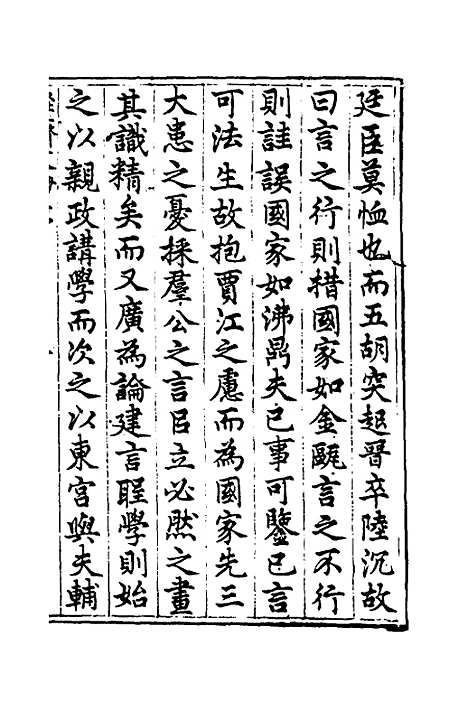 廷臣莫恤也而五胡突起晉卒陸沉故
曰言之行則措國家如金甌言之不行
則詿誤國家如沸鼎夫已事可鑒已言
可法生故抱賈江之慮而為國家先三
大患之憂採羣公之言臣立必然之畫
其識精矣而又廣為論建言聖學則始
之以親政講學而次之以東宮與夫輔